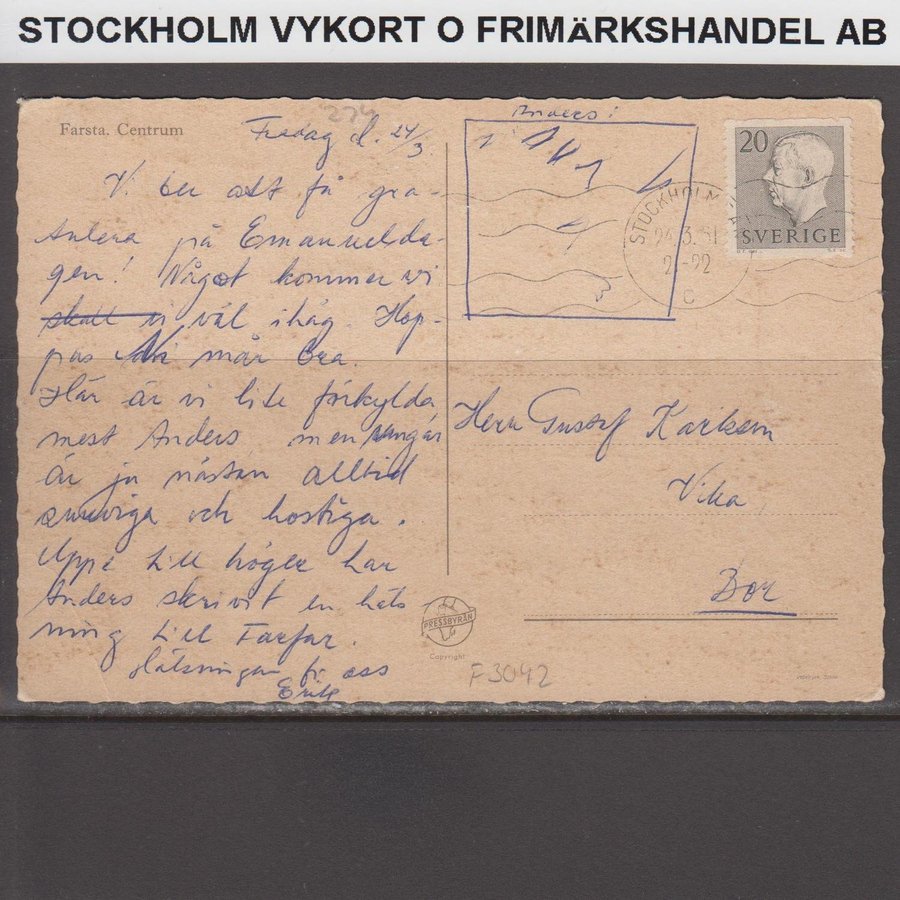 STOCKHOLM VYKORT O FRIMäRKSHANDEL AB
Farsta. Centrum
274
Fredag d. 24/3
Vi ber att få gra-
tulera på Emanuelda-
gen! Något kommer vi
skall vi väl ihåg. Hop-
pas Ni mår bra.
Här är vi lite förkylda,
mest Anders men ungar
är ju nästan alltid
snuviga och hostiga.
Uppe till höger har
Anders skrivit en häls
ning till Farfar.
Hälsningar fr oss
Erik
Anders:
20
SVERIGE
STOCKHOLM
24.3.61
21-22
C
Herr Gustaf Karlsson
Vika
Bor
PRESSBYRÅN
Copyright
F3042